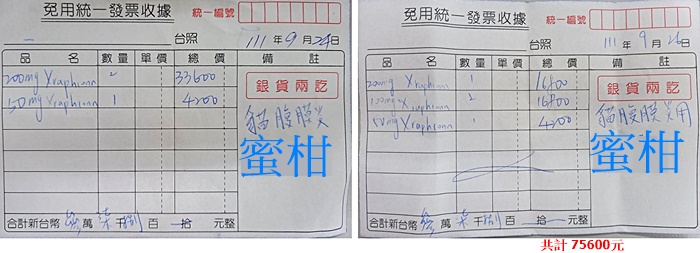 免用統一發票收據
統一編號
台照 111年9月26日
品名 數量 單價 總價 備註
200mg Xraphconn 2 33600
150mg Xraphconn 1 4200
銀貨兩訖
貓腹膜炎
蜜柑
合計新台幣參萬柒千捌百 拾 元整
免用統一發票收據
統一編號
台照 111年9月26日
品名 數量 單價 總價 備註
Xraphconn 1 16800
2 16800
Xraphconn 1 4200
銀貨兩訖
貓腹膜炎用
蜜柑
合計新台幣參萬柒千捌百 拾 元整
共計 75600元